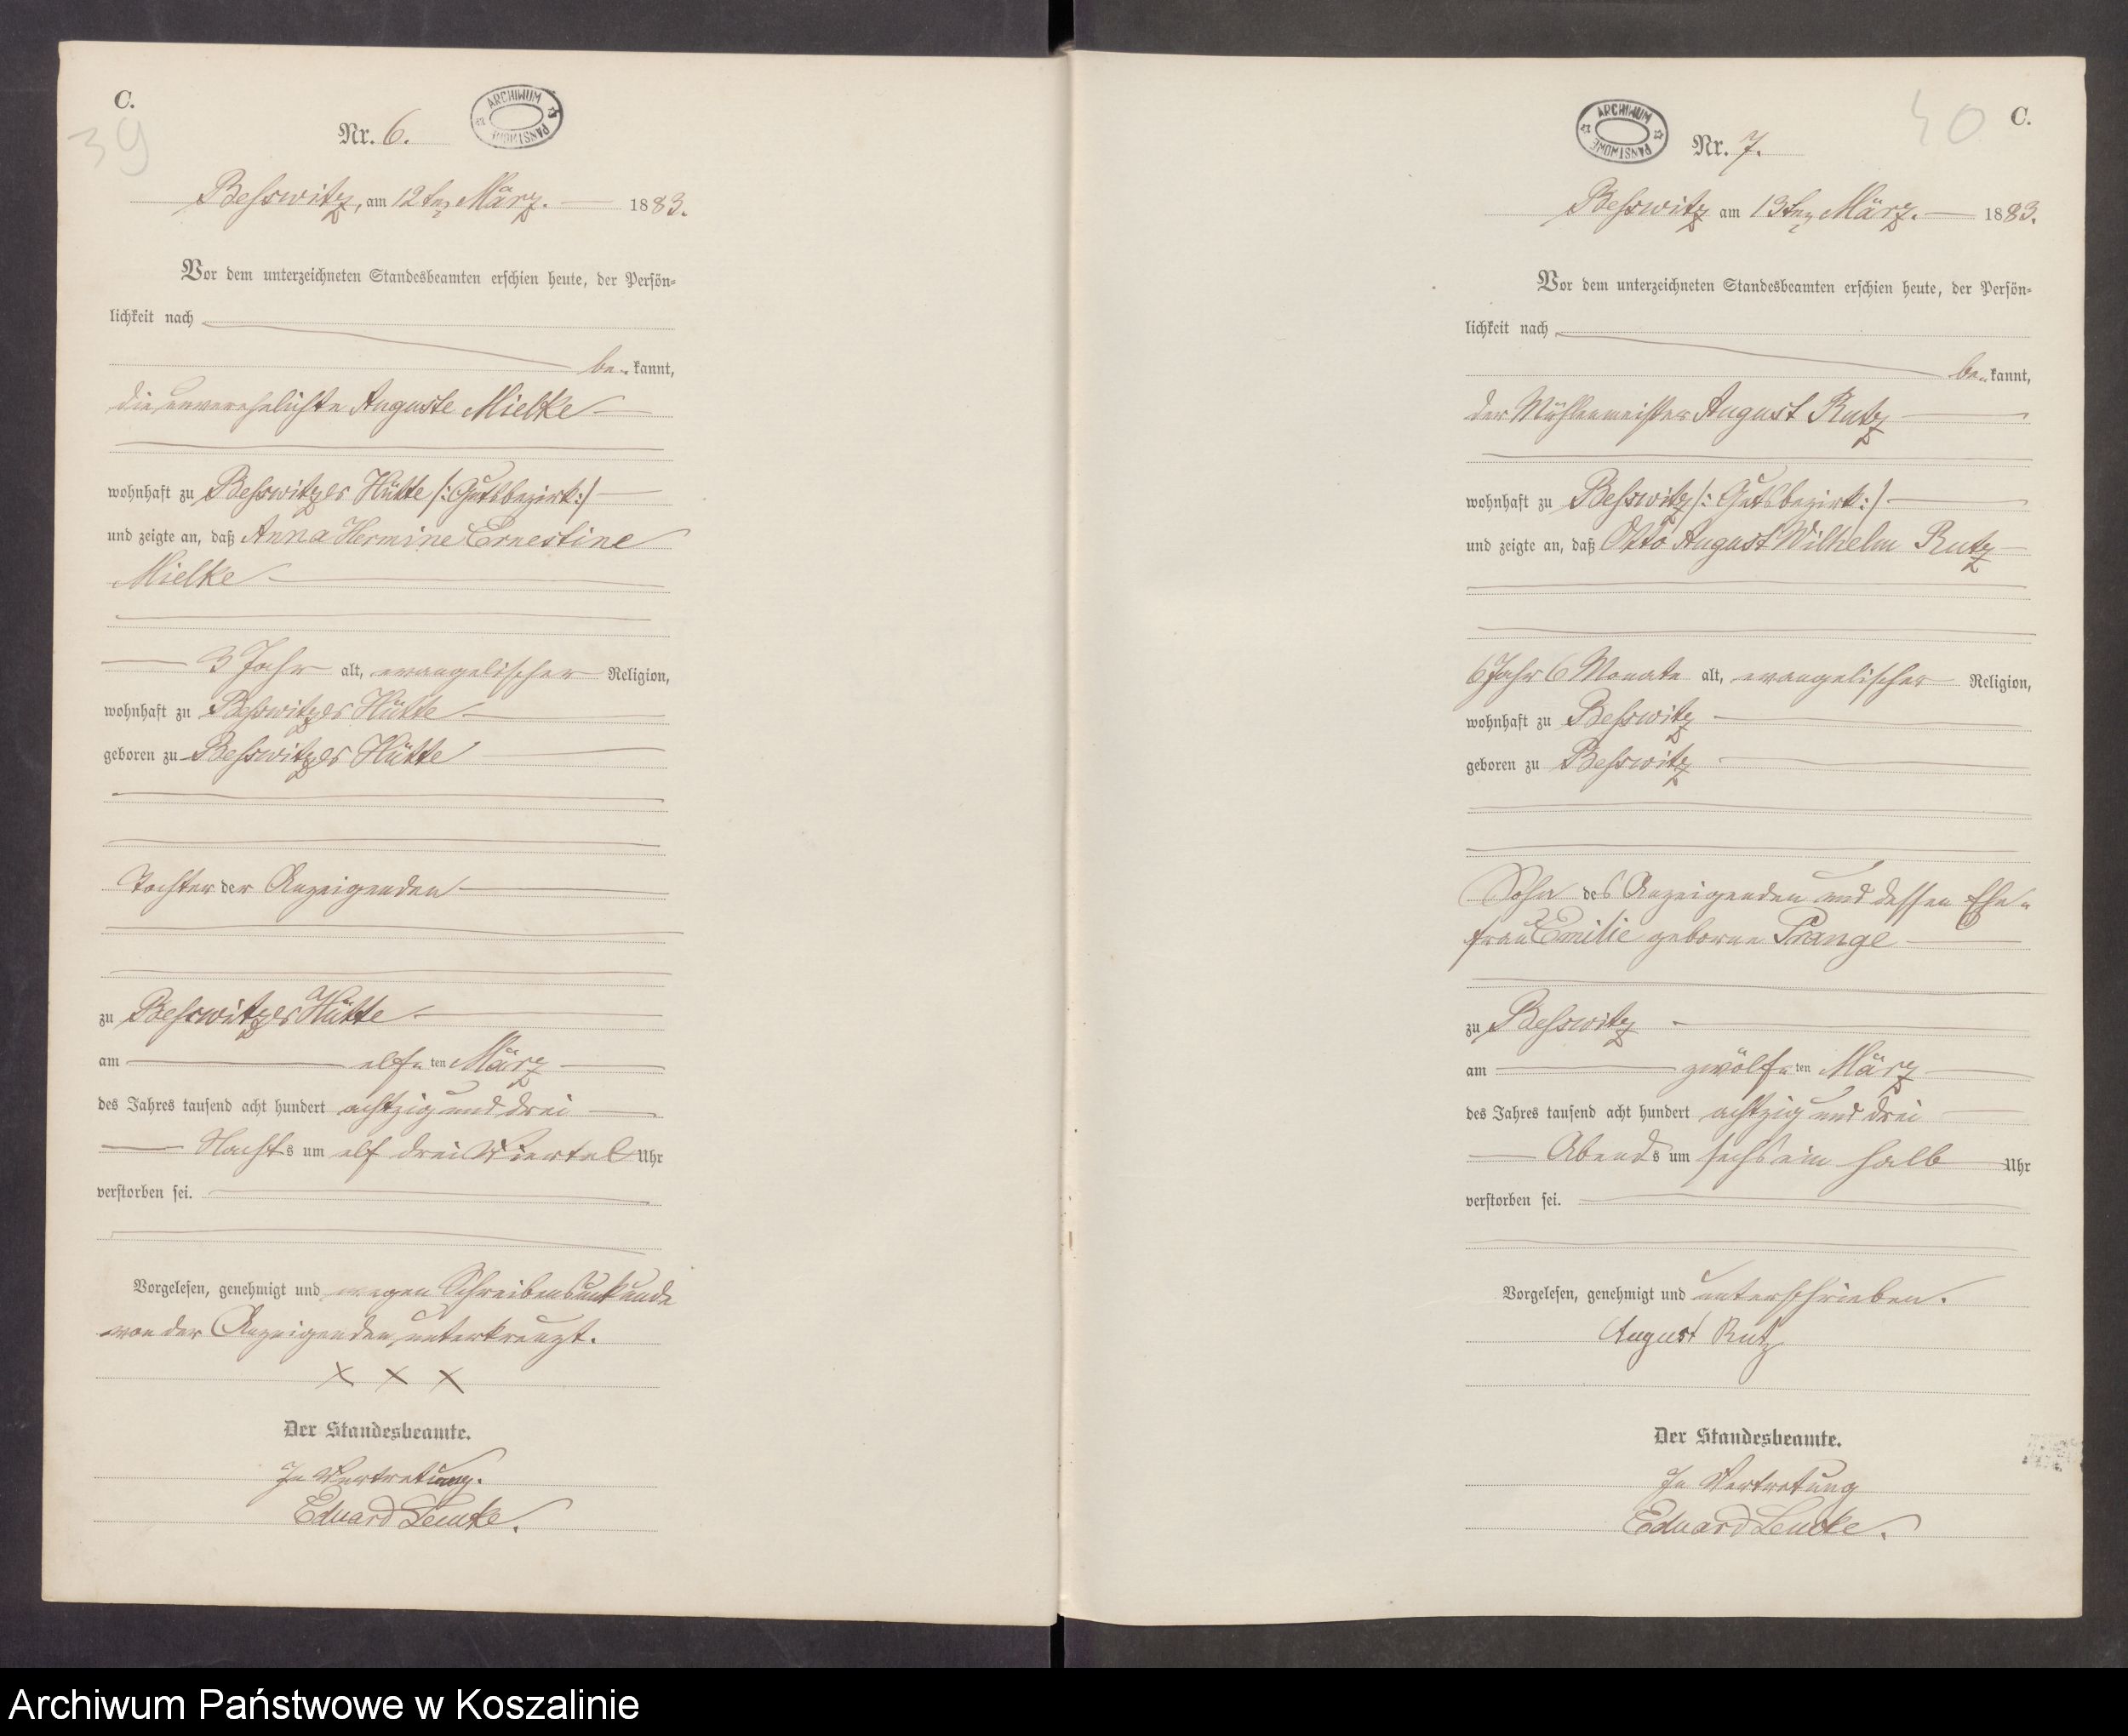 C.
39
Nr. 6.
ARCHIWUM PAŃSTWOWE
Beßwitz, am 12ten März. 1883.
Vor dem unterzeichneten Standesbeamten erschien heute, der Persön-
lichkeit nach
be- kannt,
die unverehelichte Auguste Mielke
wohnhaft zu Beßwitzer Hütte /: Gutsbezirk :/
und zeigte an, daß Anna Hermine Ernestine
Mielke
3 Jahr alt, evangelischer Religion,
wohnhaft zu Beßwitzer Hütte
geboren zu Beßwitzer Hütte
Tochter der Anzeigenden
zu Beßwitzer Hütte
am elf-ten März
des Jahres tausend acht hundert achtzig und drei
Nachts um elf drei Viertel Uhr
verstorben sei.
Vorgelesen, genehmigt und wegen Schreibensunkunde
von der Anzeigenden unterkreuzt.
X X X
Der Standesbeamte.
In Vertretung.
Eduard Lemke.
40
C.
ARCHIWUM PAŃSTWOWE
Nr. 7.
Beßwitz am 13ten März. 1883.
Vor dem unterzeichneten Standesbeamten erschien heute, der Persön-
lichkeit nach
be- kannt,
der Mühlenmeister August Rutz
wohnhaft zu Beßwitz /: Gutsbezirk :/
und zeigte an, daß Otto August Wilhelm Rutz
6 Jahr 6 Monate alt, evangelischer Religion,
wohnhaft zu Beßwitz
geboren zu Beßwitz
Sohn des Anzeigenden und dessen Ehe-
frau Emilie geborne Prange
zu Beßwitz
am zwölf-ten März
des Jahres tausend acht hundert achtzig und drei
Abends um sechs ein halb Uhr
verstorben sei.
Vorgelesen, genehmigt und unterschrieben.
August Rutz
Der Standesbeamte.
In Vertretung
Eduard Lemke.
Archiwum Państwowe w Koszalinie